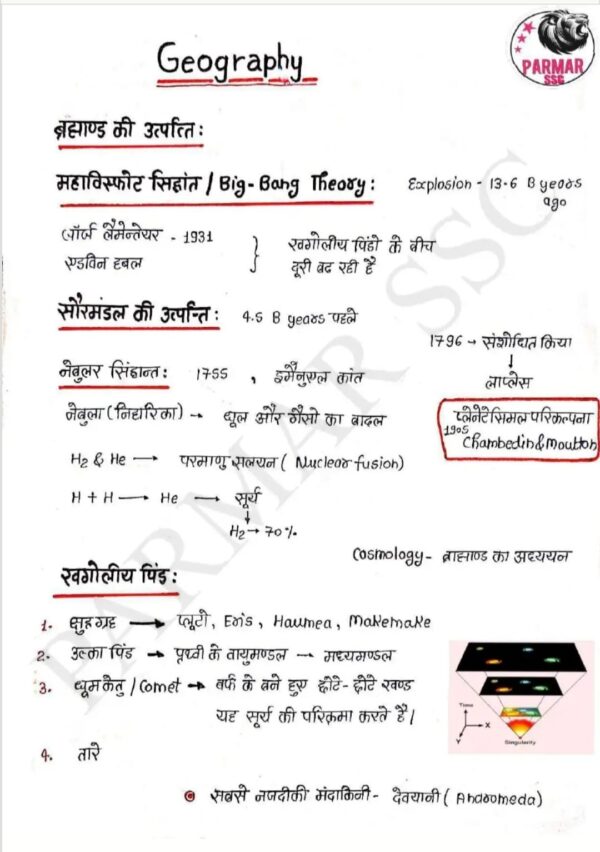 Geography
PARMAR
SSC
ब्रह्माण्ड की उत्पत्ति :
महाविस्फोट सिद्दांत / Big-Bang Theory :
Explosion - 13.6 B years
ago
जॉर्ज लैमेन्तेयर - 1931
एडविन हबल
खगोलीय पिंडो के बीच
दूरी बढ रही है
सौरमंडल की उत्पत्ति :
4.5 B years पहले
नेबुलर सिद्दान्त : 1755 , इमैनुएल कांत
1796 → संशोधित किया
↓
लाप्लेस
नेबुला (निहारिका) → धूल और गैसो का बादल
प्लेनेटेसिमल परिकल्पना
1905
Chambedin & Moulton
H₂ & He → परमाणु सलयन ( Nuclear fusion)
H + H → He → सूर्य
↓
H₂ → 70%
Cosmology - ब्राह्माण्ड का अध्ययन
खगोलीय पिंड :
1. क्षुद्रग्रह → प्लूटो, Eris, Haumea, Makemake
2. उल्का पिंड → पृथ्वी के वायुमण्डल → मध्यमण्डल
3. धूमकेतु / Comet → बर्फ के बने हुए छोटे-छोटे खण्ड
यह सूर्य की परिक्रमा करते है।
4. तारे
Time
X
Y
Singularity
सबसे नजदीकी मंदाकिनी - देवयानी ( Andromeda)
PARMAR SSC